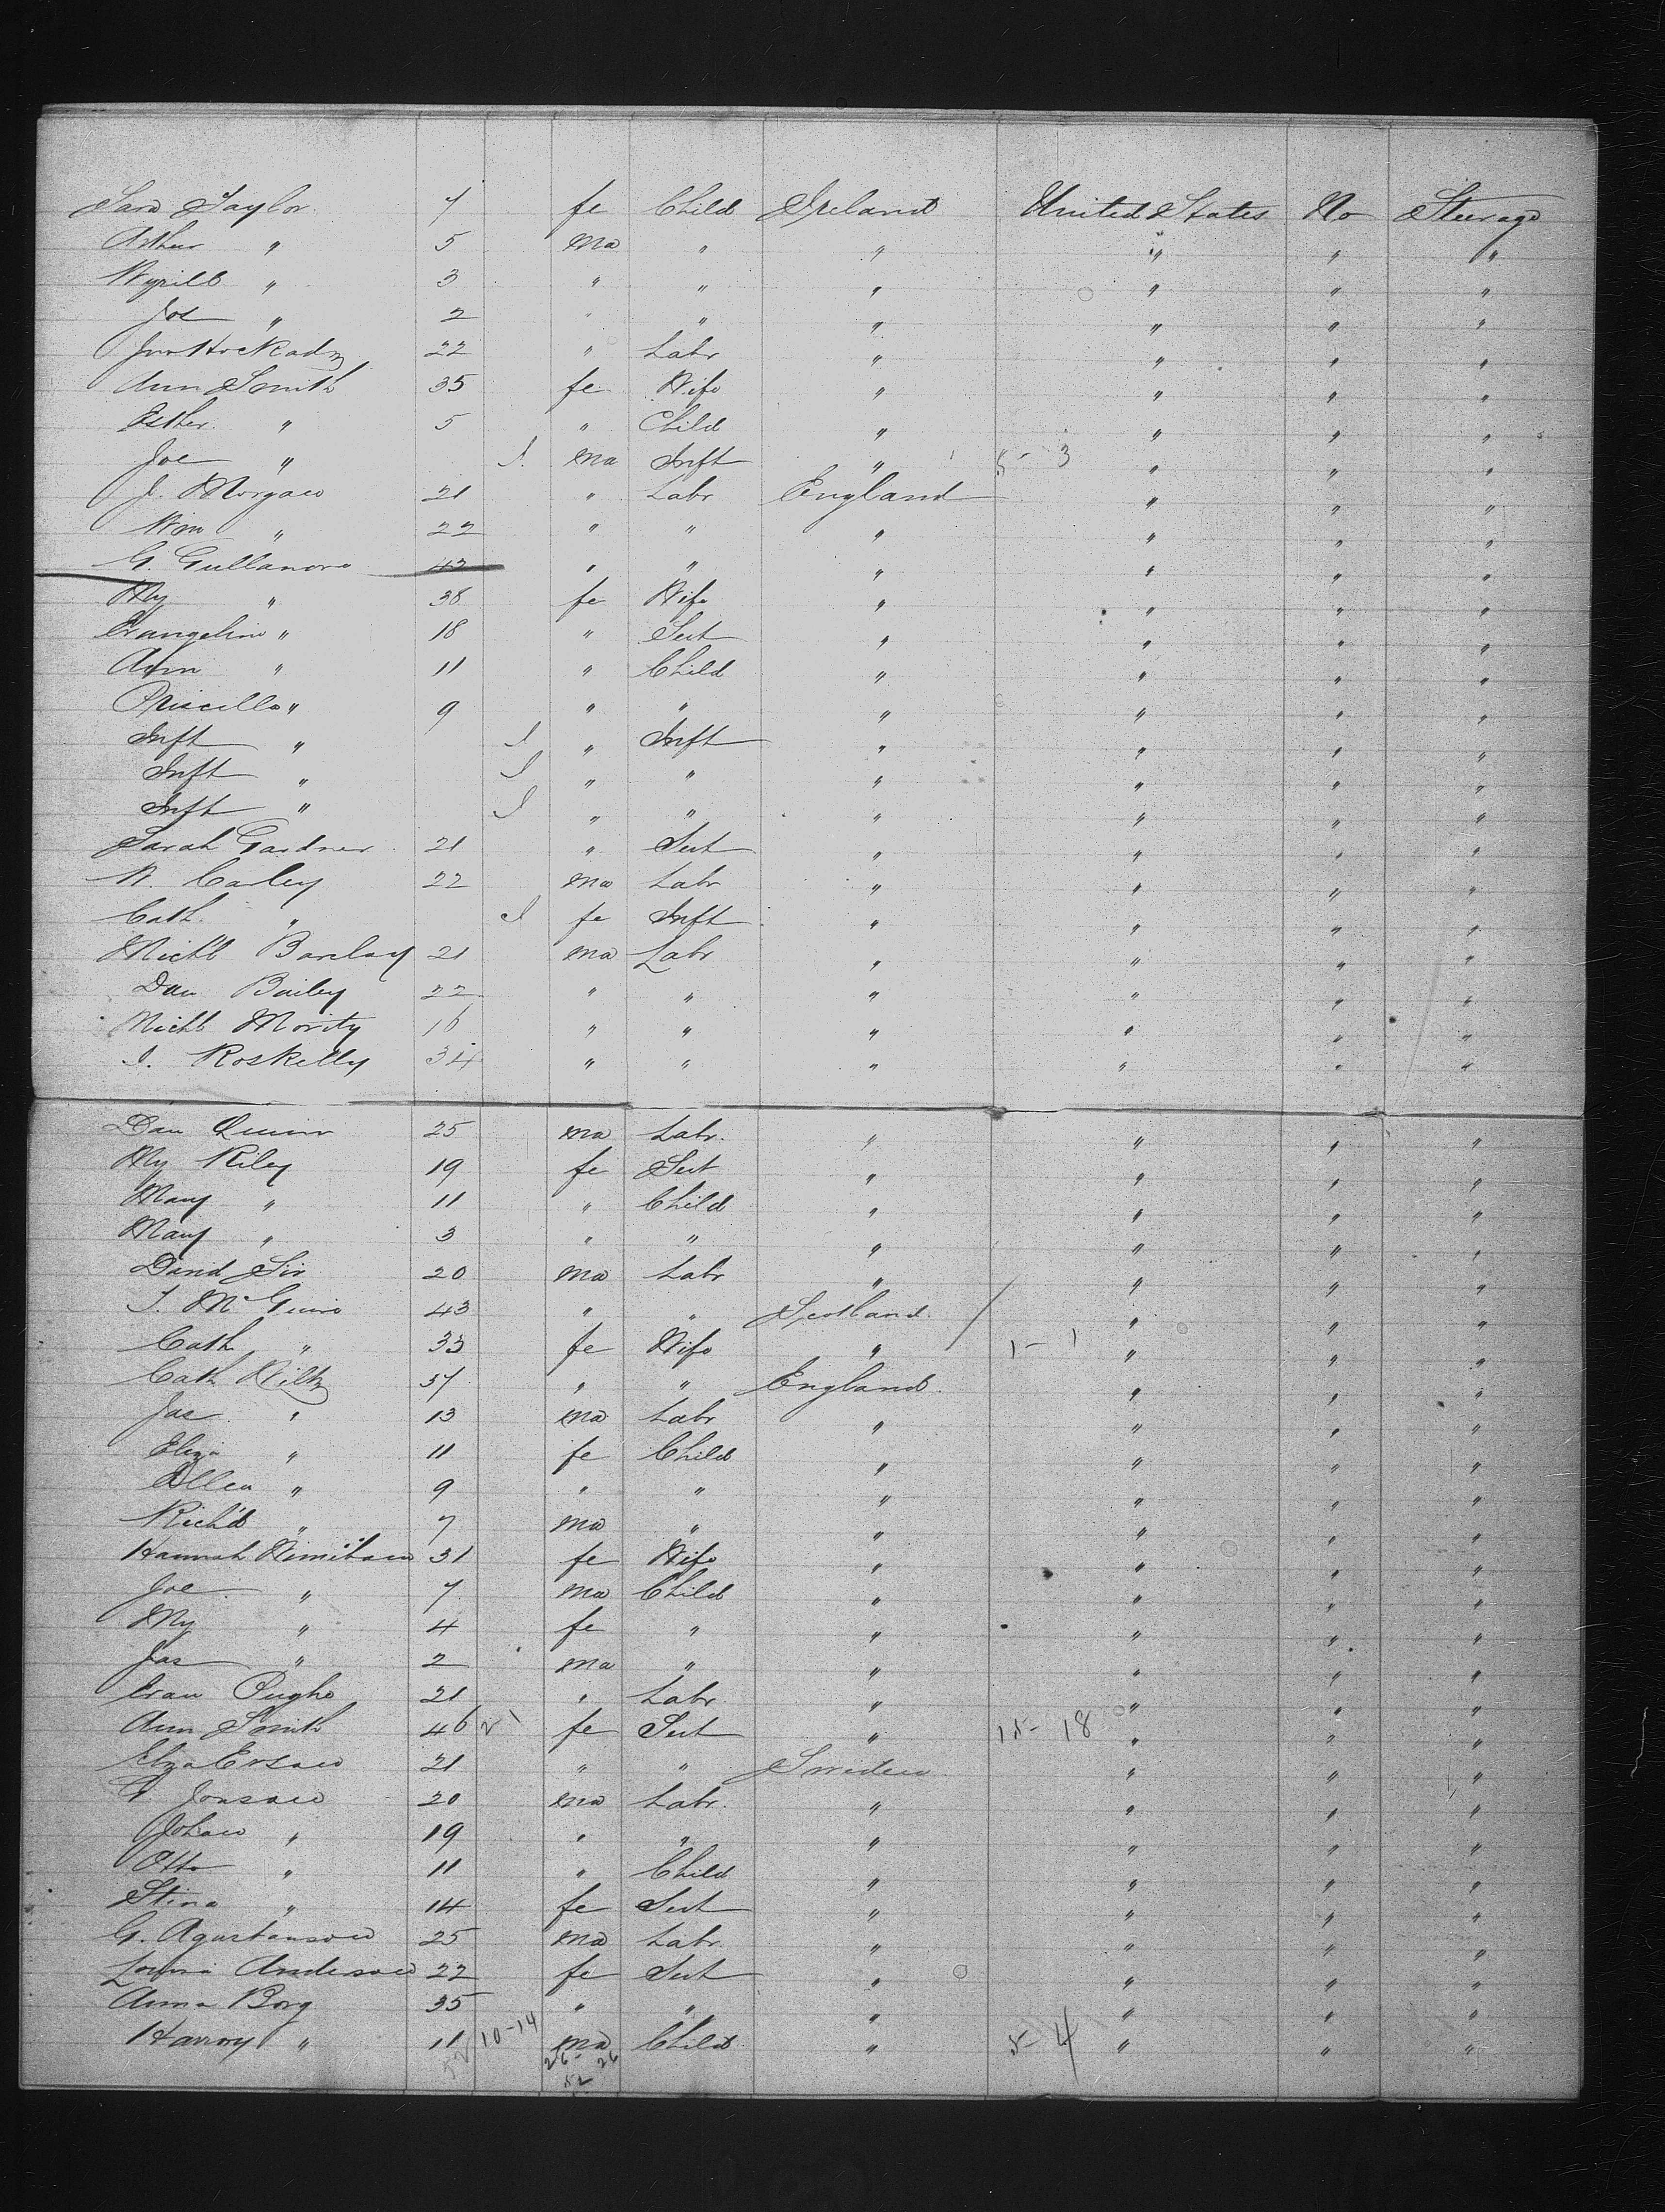 Sara Taylor 7 fe Child Ireland United States No Steerage
Arthur " 5 ma " " " " "
" 3 " " " " " "
Jos " 2 " " " " " "
22 " Labr " " " "
Ann Smith 35 fe Wife " " " "
Esther " 5 " Child " " " "
Joe " I. ma Inft " 5- 3 " " "
J. Morgan 21 " Labr England " " "
Wm " 22 " " " " " "
G. 43 " " " " " "
My " 38 fe Wife " " " "
Evangeline " 18 " Sert " " " "
Ann " 11 " Child " " " "
Priscilla " 9 " " " " " "
Inft " I " Inft " " " "
Inft " I " " " " " "
Inft " I " " " " " "
Sarah Gardner 21 " Sert " " " "
W. Carley 22 ma Labr " " " "
Cath. " I fe Inft " " " "
Michl Barclay 21 ma Labr " " " "
Dan Bailey 22 " " " " " "
Michl Mority 16 " " " " " "
I. Roskelly 34 " " " " " "
Dan Quinn 25 ma Labr. " " " "
My Riley 19 fe Sert " " " "
Mary " 11 " Child " " " "
Mary " 3 " " " " " "
David Sir 20 ma Labr " " " "
43 " " Scotland. " " "
Cath " 33 fe Wife " 1- 1 " " "
Cath 37 " " England. " " "
Jas " 13 ma Labr " " " "
Eliza " 11 fe Child " " " "
Ellen " 9 " " " " " "
Rich'd " 7 ma " " " " "
Hannah 31 fe Wife " " " "
Joe " 7 ma Child " " " "
My " 4 fe " " " " "
Jas " 2 ma " " " " "
Evan Pughe 21 " Labr " " " "
Ann Smith 46 2 1 fe Sert " 15- 18 " " "
21 " " Sweden " " "
Jonsson 20 ma Labr. " " " "
Johan " 19 " " " " " "
Otto " 11 " Child " " " "
Stina " 14 fe Sert " " " "
G. Agustanson 25 ma Labr. " " " "
Anderson 22 fe Sert " " " "
Anna Borg 35 " " " " " "
Harroy " 11 10-14 ma Child " 5- 4 " " "
52 26- 26
52